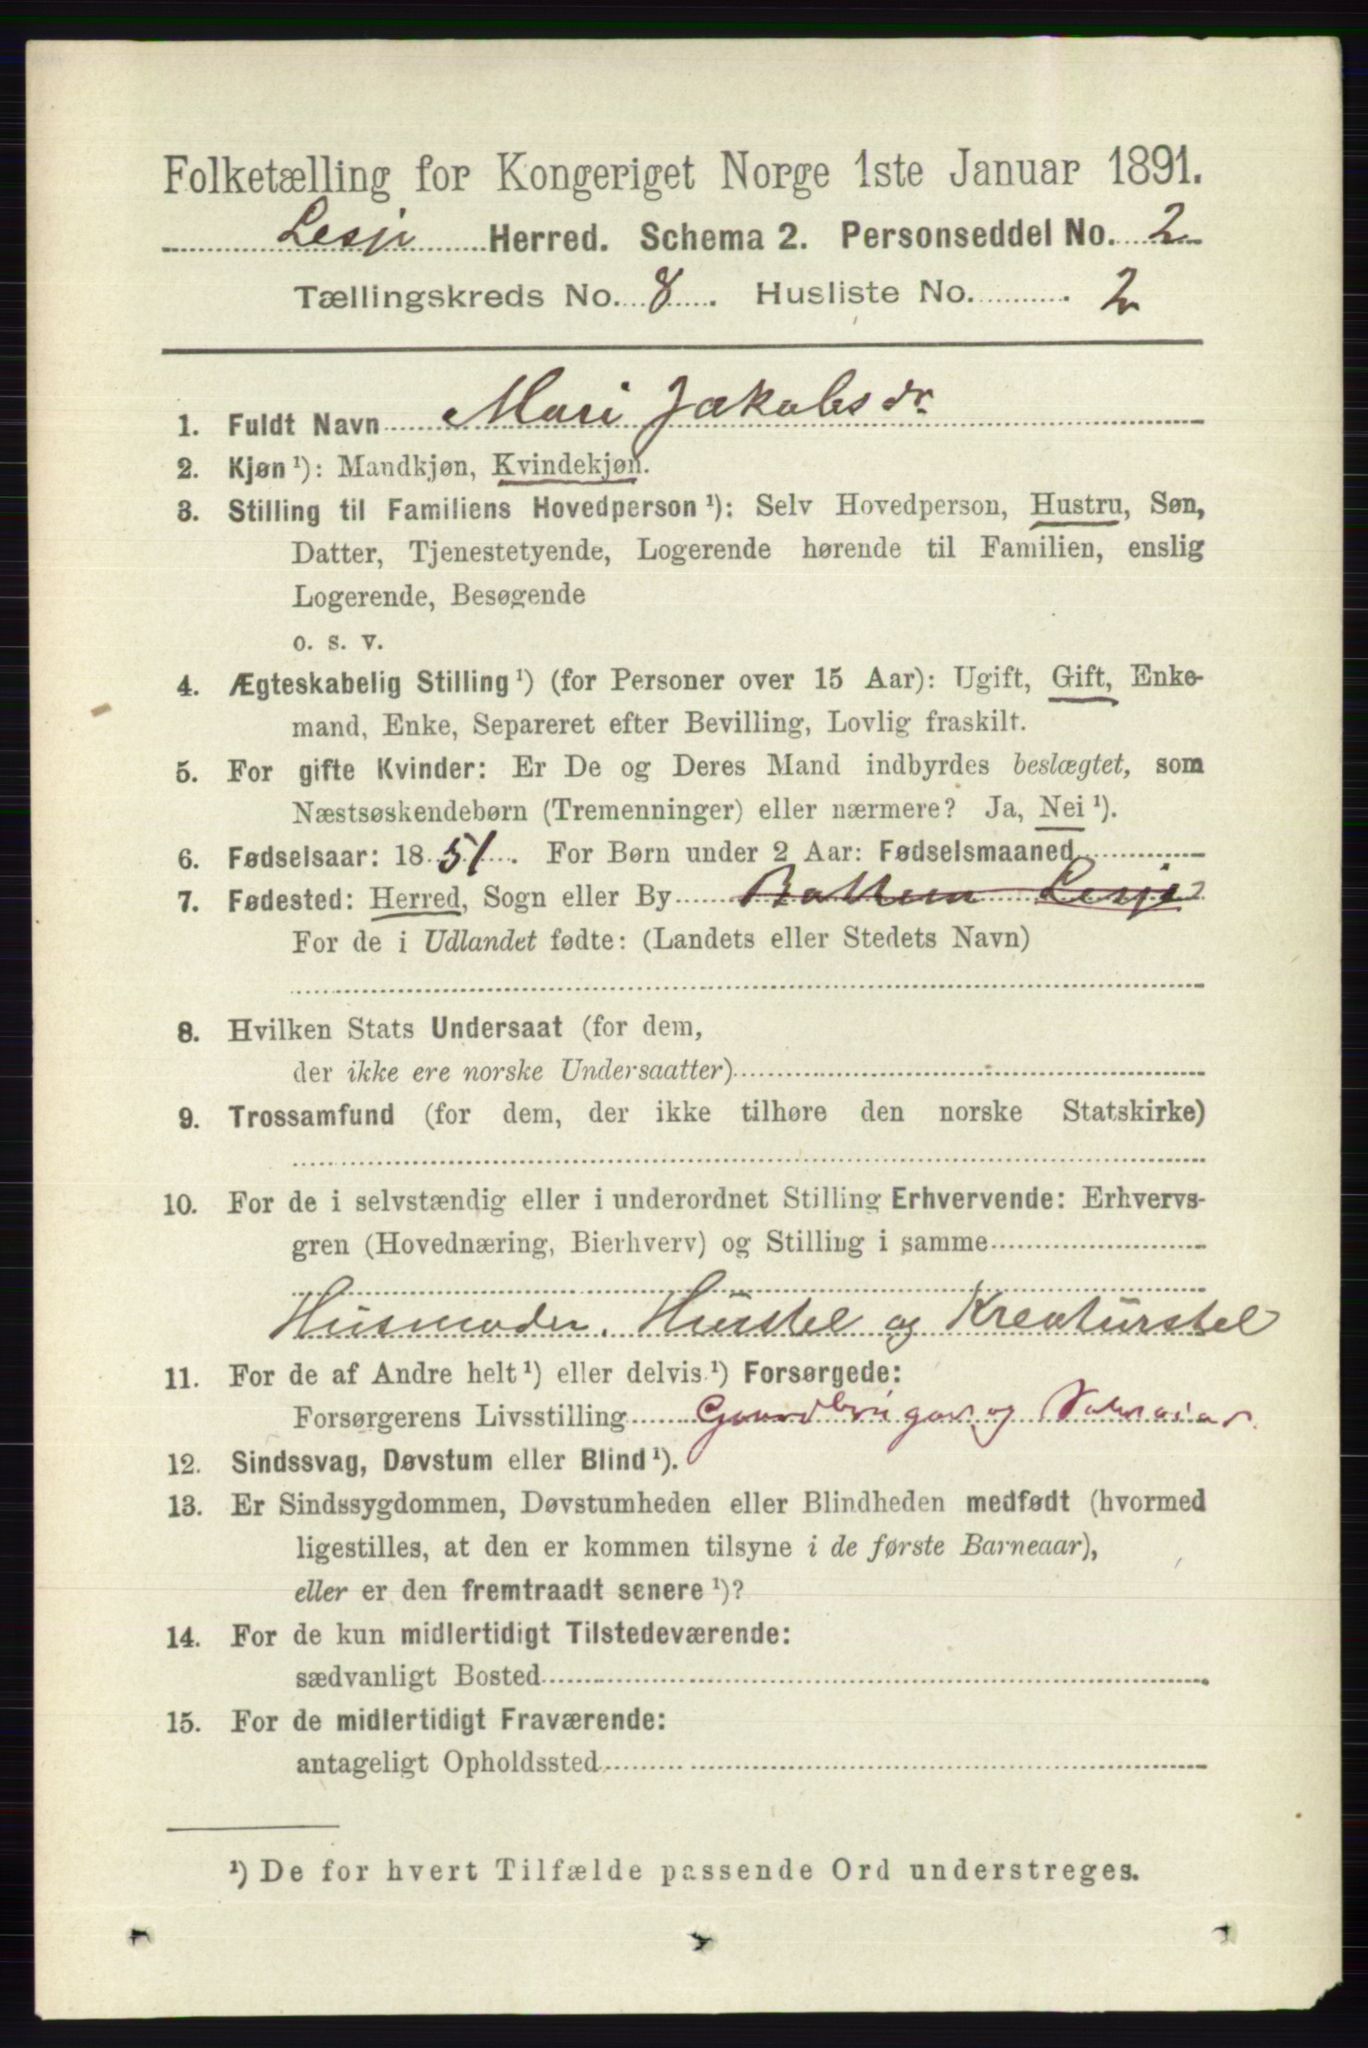 Folketælling for Kongeriget Norge 1ste Januar 1891.
Lesje Herred. Schema 2. Personseddel No. 2
Tællingskreds No. 8. Husliste No. 2
1. Fuldt Navn Mari Jakobsdr.
2. Kjøn¹): Mandkjøn, Kvindekjøn.
3. Stilling til Familiens Hovedperson¹): Selv Hovedperson, Hustru, Søn,
Datter, Tjenestetyende, Logerende hørende til Familien, enslig
Logerende, Besøgende
o. s. v.
4. Ægteskabelig Stilling¹) (for Personer over 15 Aar): Ugift, Gift, Enke-
mand, Enke, Separeret efter Bevilling, Lovlig fraskilt.
5. For gifte Kvinder: Er De og Deres Mand indbyrdes beslægtet, som
Næstsøskendebørn (Tremenninger) eller nærmere? Ja, Nei¹).
6. Fødselsaar: 1851. For Børn under 2 Aar: Fødselsmaaned
7. Fødested: Herred, Sogn eller By Lesje
For de i Udlandet fødte: (Landets eller Stedets Navn)
8. Hvilken Stats Undersaat (for dem,
der ikke ere norske Undersaatter)
9. Trossamfund (for dem, der ikke tilhøre den norske Statskirke)
10. For de i selvstændig eller i underordnet Stilling Erhvervende: Erhvervs-
gren (Hovednæring, Bierhverv) og Stilling i samme
Husmoder. Husstel og Kreaturstel
11. For de af Andre helt¹) eller delvis¹) Forsørgede:
Forsørgerens Livsstilling Gaardbruger og
12. Sindssvag, Døvstum eller Blind¹).
13. Er Sindssygdommen, Døvstumheden eller Blindheden medfødt (hvormed
ligestilles, at den er kommen tilsyne i de første Barneaar),
eller er den fremtraadt senere¹)?
14. For de kun midlertidigt Tilstedeværende:
sædvanligt Bosted
15. For de midlertidigt Fraværende:
antageligt Opholdssted
¹) De for hvert Tilfælde passende Ord understreges.